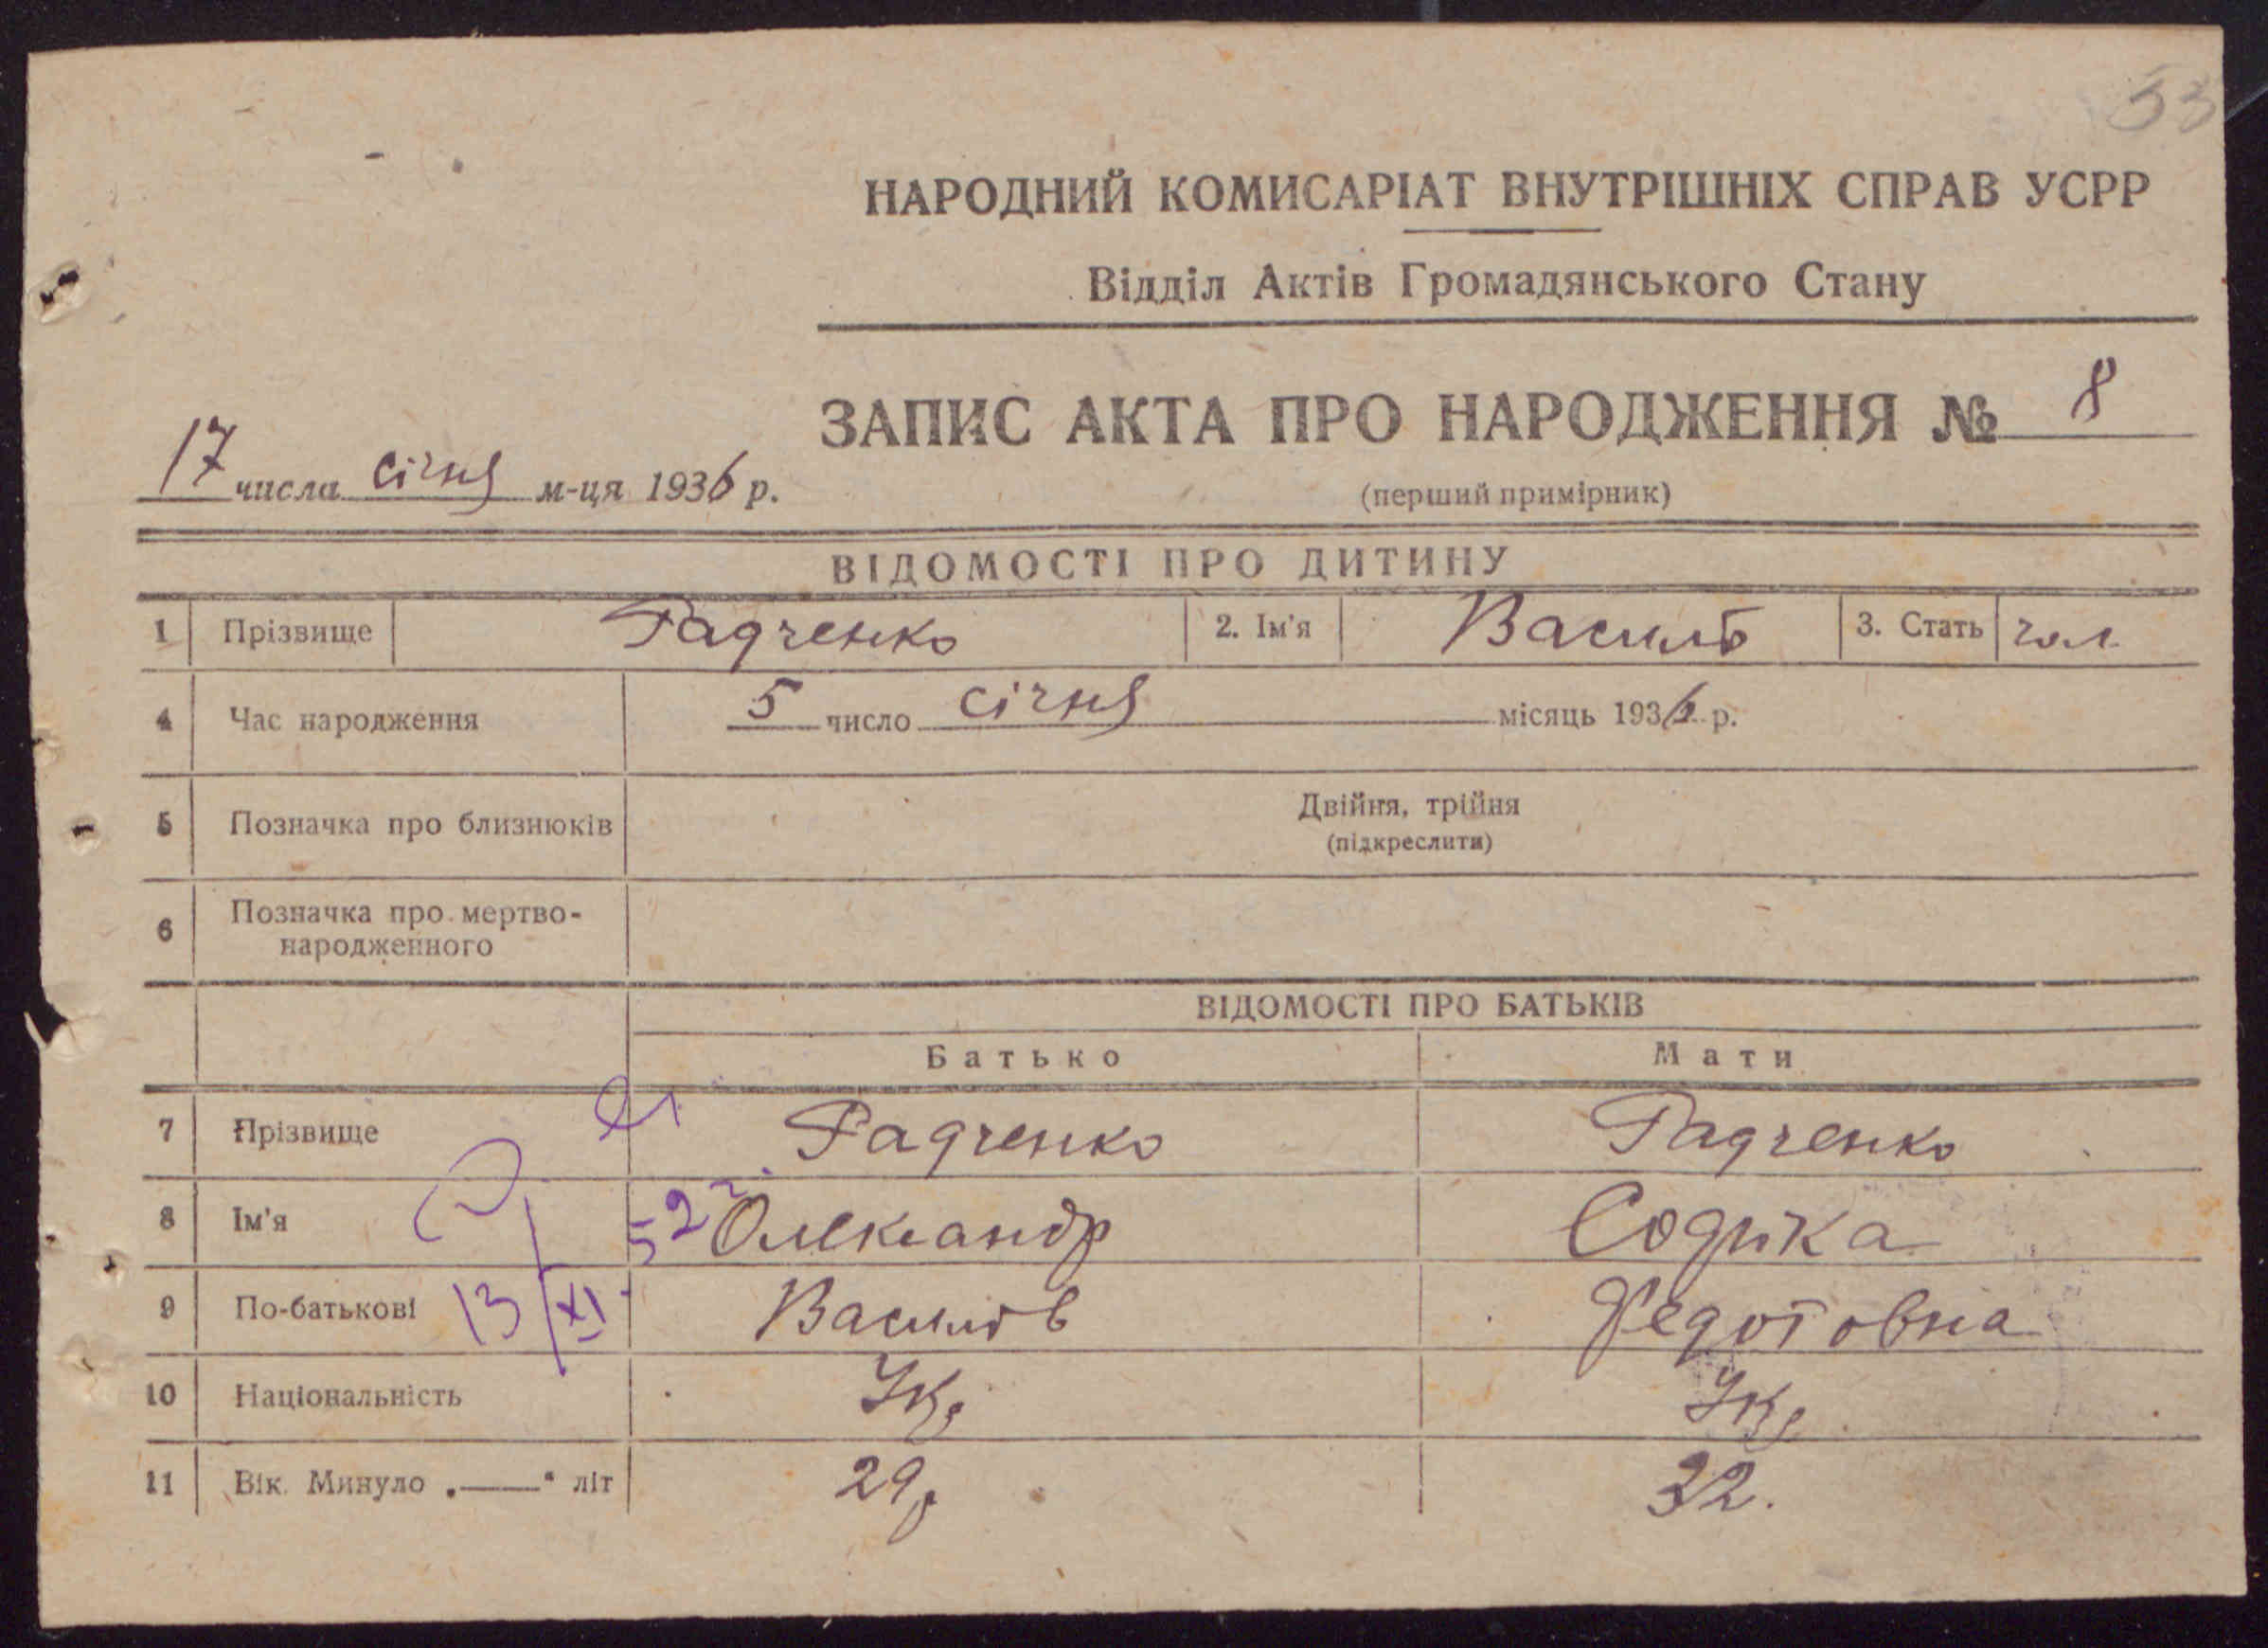 53
НАРОДНИЙ КОМИСАРІАТ ВНУТРІШНІХ СПРАВ УСРР
Відділ Актів Громадянського Стану
ЗАПИС АКТА ПРО НАРОДЖЕННЯ № 8
17 числа січня м-ця 1936 р.
(перший примірник)
ВІДОМОСТІ ПРО ДИТИНУ
1 Прізвище Радченко 2. Ім'я Василь 3. Стать чол.
4 Час народження 5 число січня місяць 1936 р.
5 Позначка про близнюків Двійня, трійня
(підкреслити)
6 Позначка про мертво-
народженного
ВІДОМОСТІ ПРО БАТЬКІВ
Батько Мати
7 Прізвище Радченко Радченко
8 Ім'я 52 Олександр
9 По-батькові 13/XI Васильов Федотовна
10 Національність Укр Укр
11 Вік. Минуло „——“ літ 29 р 32.